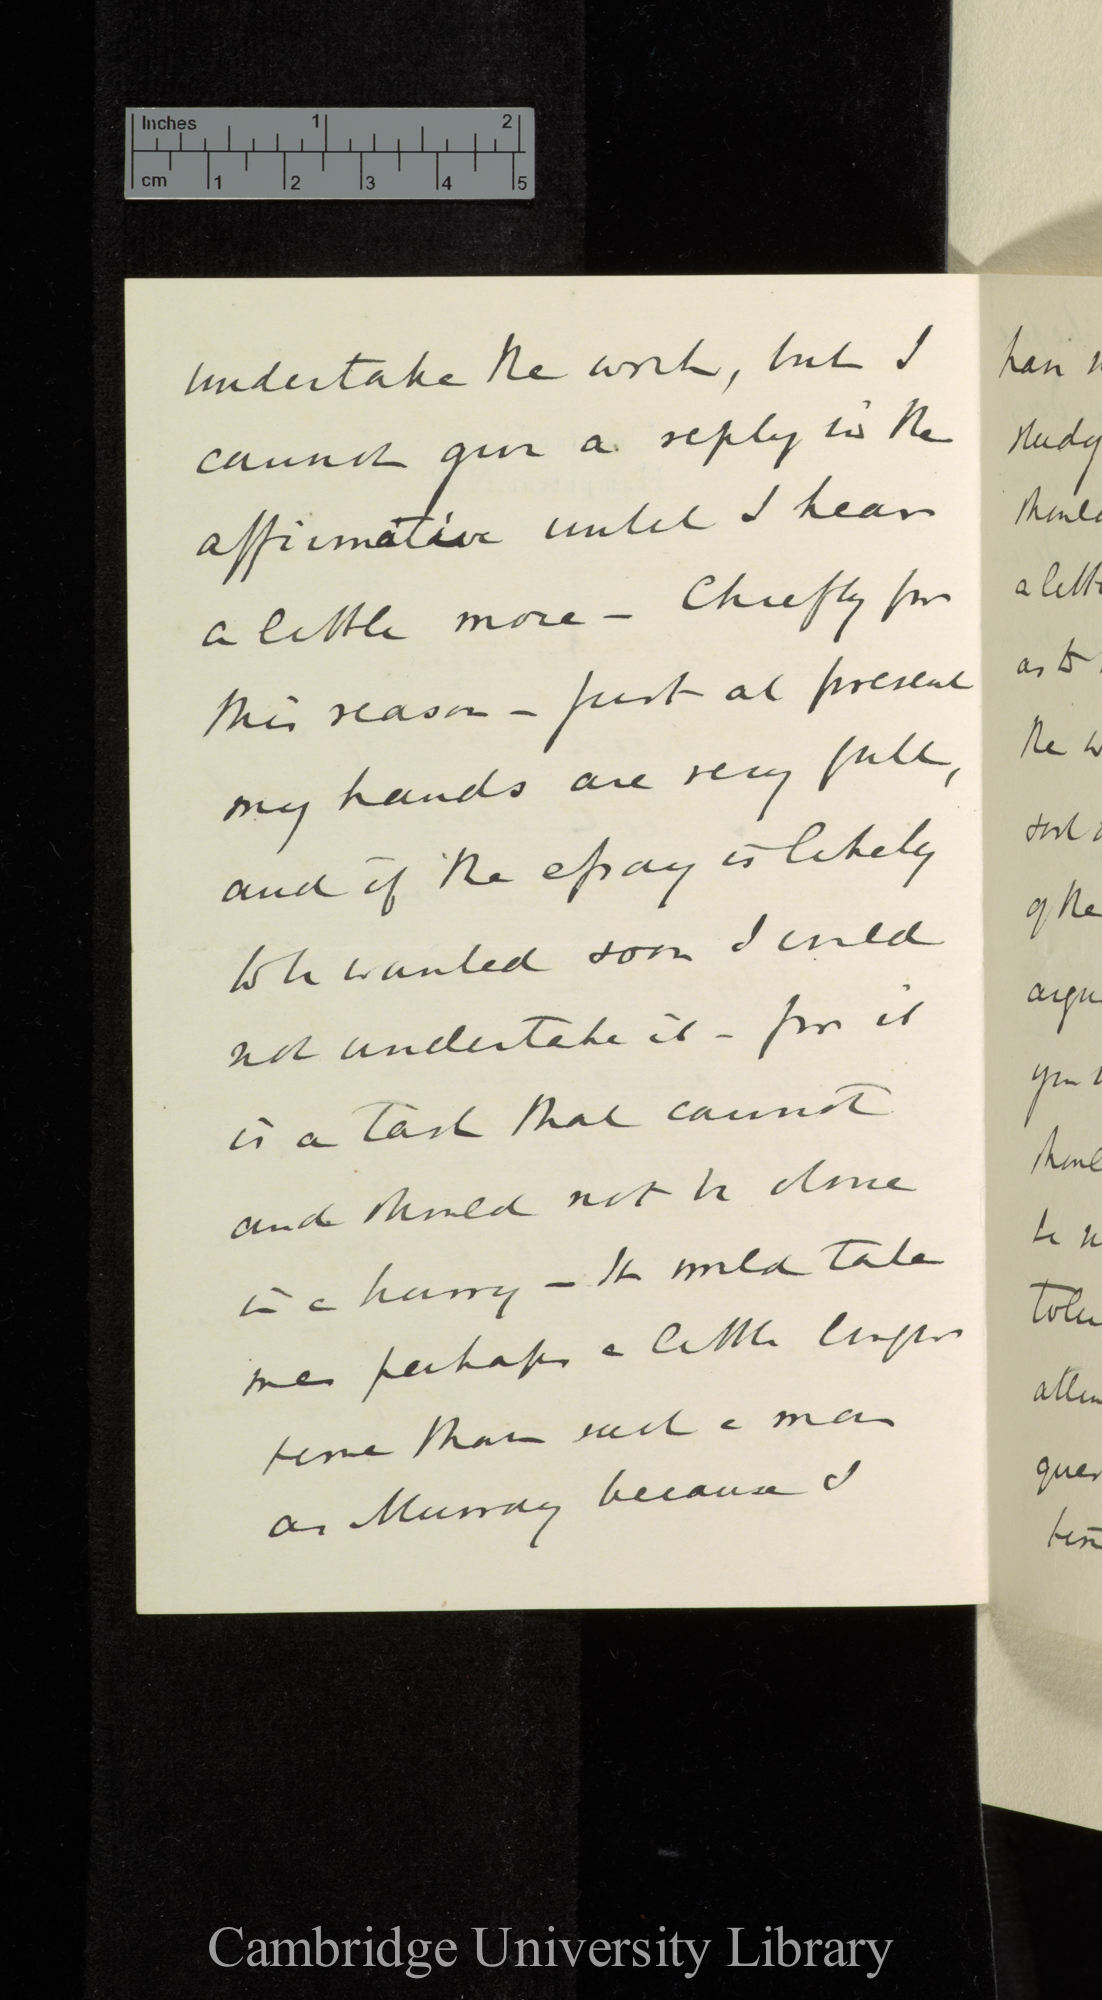 Inches 1 2
cm 1 2 3 4 5
undertake the work, but I
cannot give a reply in the
affirmative until I hear
a little more – Chiefly for
this reason – just at present
my hands are very full,
and if the essay is likely
to be wanted soon I could
not undertake it – for it
is a task that cannot
and should not be done
in a hurry – It would take
me perhaps a little longer
time than such a man
as Murray because I
study
should
as to
the w
sort
of the
argu
you
shoul
be
attem
Cambridge University Library